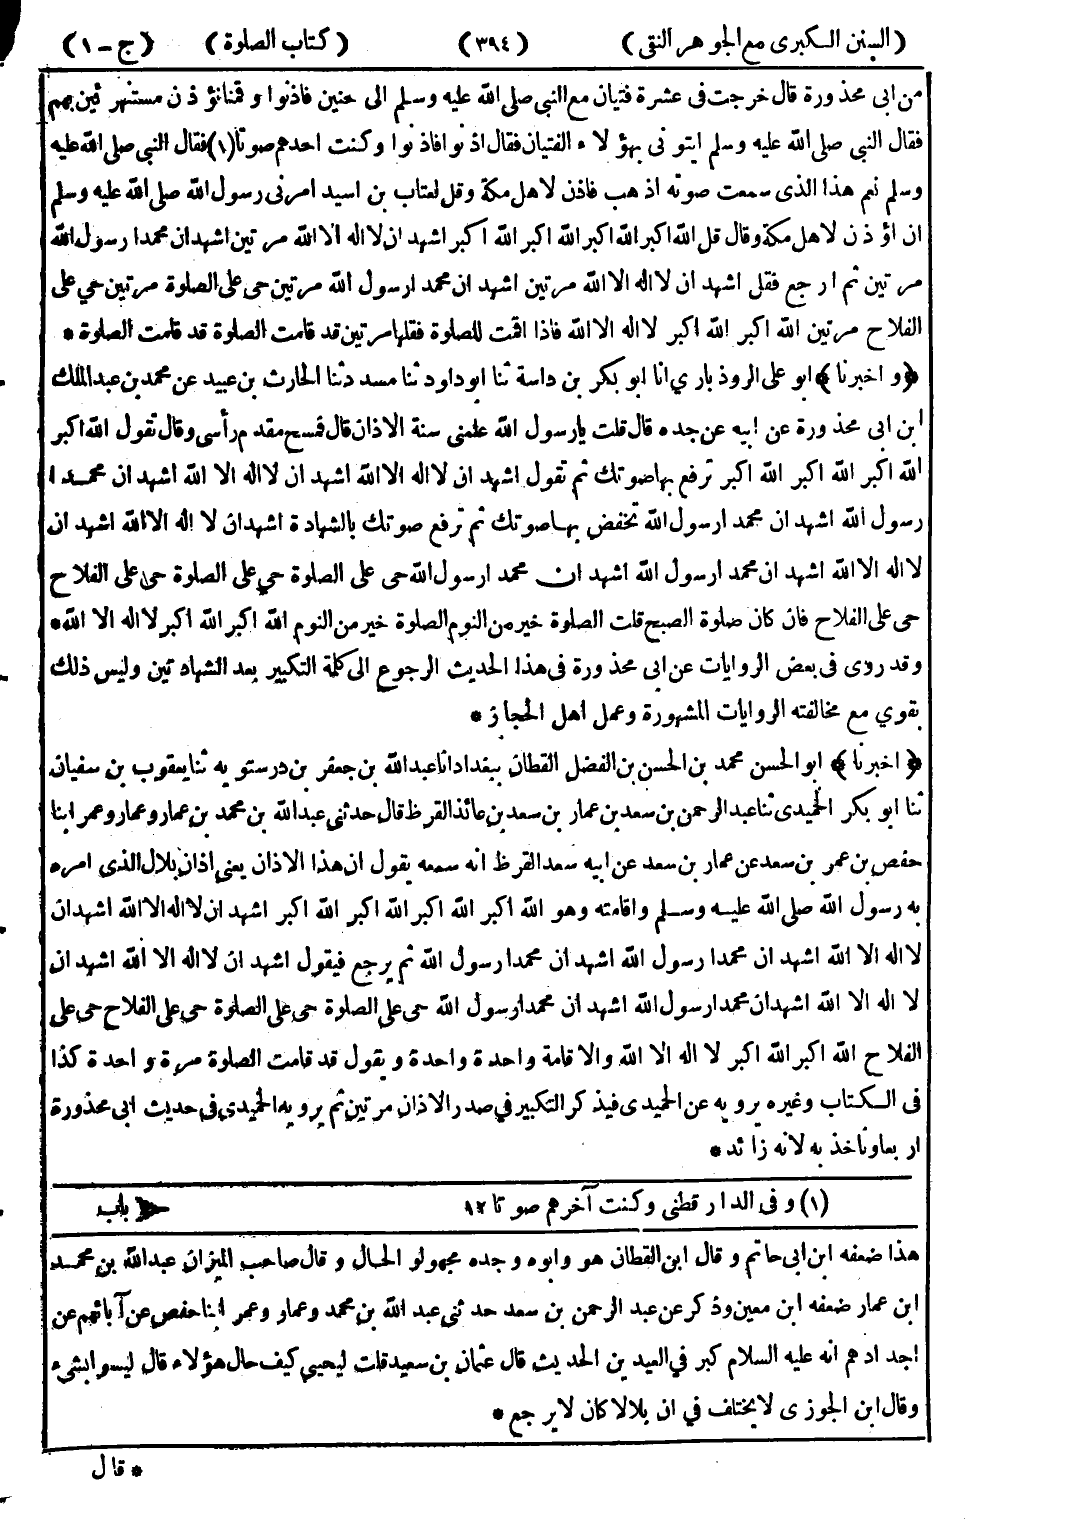 (السنن الكبرى مع الجوهر النقى) (٣٩٤) (كتاب الصلوة) (ج-١)
من ابى محذورة قال خرجت فى عشرة فتيان مع النبي صلى الله عليه وسلم الى حنين فاذنوا وقمنا نؤذن مستنهزئين بهم
فقال النبي صلى الله عليه وسلم ايتونى بهؤلاء الفتيان فقال اذنوا فاذنوا وكنت احدهم صوتا(١) فقال النبي صلى الله عليه
وسلم نعم هذا الذى سمعت صوته اذهب فاذن لاهل مكة وقل لعتاب بن اسيد امرنى رسول الله صلى الله عليه وسلم
ان اؤذن لاهل مكة وقال قل الله اكبر الله اكبر الله اكبر الله اكبر اشهد ان لا اله الا الله مرتين اشهد ان محمدا رسول الله
مرتين ثم ارجع فقل اشهد ان لا اله الا الله مرتين اشهد ان محمدا رسول الله مرتين حى على الصلوة مرتين حي على
الفلاح مرتين الله اكبر الله اكبر لا اله الا الله فاذا اقمت للصلوة فقلها مرتين قد قامت الصلوة قد قامت الصلوة *
﴿و اخبرنا﴾ ابو على الروذ باري انا ابو بكر بن داسة ثنا ابو داود ثنا مسدد ثنا الحارث بن عبيد عن محمد بن عبدالملك
ابن ابى محذورة عن ابيه عن جده قال قلت يا رسول الله علمنى سنة الاذان قال فمسح مقدم رأسى وقال تقول الله اكبر
الله اكبر الله اكبر الله اكبر ترفع بها صوتك ثم تقول اشهد ان لا اله الا الله اشهد ان لا اله الا الله اشهد ان محمدا
رسول الله اشهد ان محمدا رسول الله تخفض بها صوتك ثم ترفع صوتك بالشهادة اشهد ان لا اله الا الله اشهد ان
لا اله الا الله اشهد ان محمدا رسول الله اشهد ان محمدا رسول الله حى على الصلوة حي على الصلوة حى على الفلاح
حى على الفلاح فان كان صلوة الصبح قلت الصلوة خير من النوم الصلوة خير من النوم الله اكبر الله اكبر لا اله الا الله*
وقد روى فى بعض الروايات عن ابى محذورة فى هذا الحديث الرجوع الى كلمة التكبير بعد الشهادتين وليس ذلك
بقوي مع مخالفته الروايات المشهورة وعمل اهل الحجاز *
﴿اخبرنا﴾ ابو الحسن محمد بن الحسن بن الفضل القطان ببغداد انا عبدالله بن جعفر بن درستويه ثنا يعقوب بن سفيان
ثنا ابو بكر الحميدى ثنا عبد الرحمن بن سعد بن عمار بن سعد بن عائذ القرظ قال حدثنى عبدالله بن محمد بن عمار وعمار وعمر ابنا
حفص بن عمر بن سعد عن عمار بن سعد عن ابيه سعد القرظ انه سمعه يقول ان هذا الاذان يعنى اذان بلال الذى امره
به رسول الله صلى الله عليه وسلم واقامته وهو الله اكبر الله اكبر الله اكبر الله اكبر اشهد ان لا اله الا الله اشهد ان
لا اله الا الله اشهد ان محمدا رسول الله اشهد ان محمدا رسول الله ثم يرجع فيقول اشهد ان لا اله الا الله اشهد ان
لا اله الا الله اشهد ان محمدا رسول الله اشهد ان محمدا رسول الله حى على الصلوة حى على الصلوة حى على الفلاح حى على
الفلاح الله اكبر الله اكبر لا اله الا الله والاقامة واحدة واحدة ويقول قد قامت الصلوة مرة واحدة كذا
فى الكتاب وغيره يرويه عن الحميدى فيذكر التكبير في صدر الاذان مرتين ثم يرويه الحميدى فى حديث ابى محذورة
اربعا ونأخذ به لانه زائد *
(١) وفى الدار قطنى وكنت آخرهم صوتا ١٢ باب
هذا ضعفه ابن ابى حاتم وقال ابن القطان هو وابوه وجده مجهولو الحال وقال صاحب الميزان عبدالله بن محمد
ابن عمار ضعفه ابن معين وذكر عن عبد الرحمن بن سعد حدثنى عبد الله بن محمد وعمار وعمر ابنا حفص عن آبائهم عن
اجدادهم انه عليه السلام كبر في العيدين الحديث قال عثمان بن سعيد قلت ليحيي كيف حال هؤلاء قال ليسوا بشىء
وقال ابن الجوزى لا يختلف في ان بلالا كان لا يرجع *
* قال